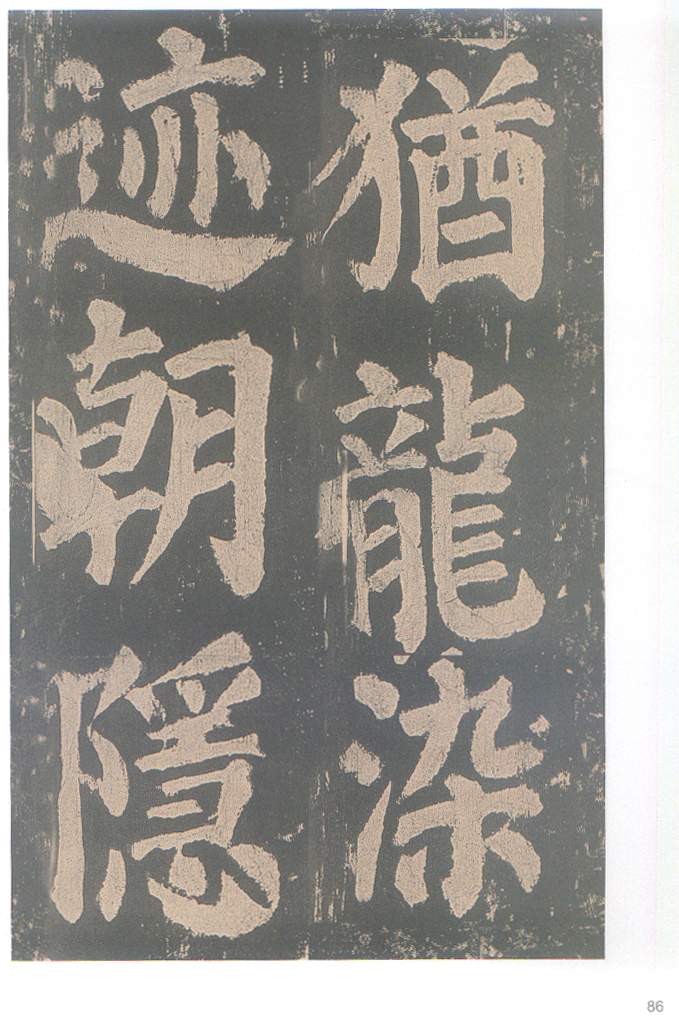 猶龍染
迹朝隱
86